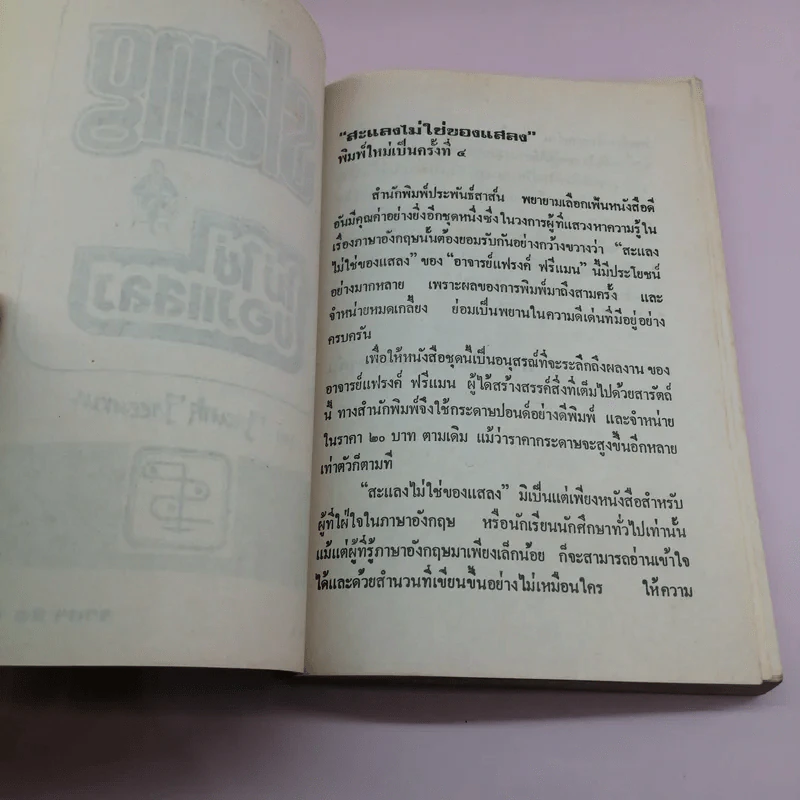 slang
"สะแลงไม่ใช่ของแสลง"
พิมพ์ใหม่เป็นครั้งที่ ๔
สำนักพิมพ์ประพันธ์สาส์น พยายามเลือกเฟ้นหนังสือดี
อันมีคุณค่าอย่างยิ่งอีกชุดหนึ่งซึ่งในวงการผู้ที่แสวงหาความรู้ใน
เรื่องภาษาอังกฤษนั้นต้องยอมรับกันอย่างกว้างขวางว่า "สะแลง
ไม่ใช่ของแสลง" ของ "อาจารย์แฟรงค์ ฟรีแมน" นี้มีประโยชน์
อย่างมากหลาย เพราะผลของการพิมพ์มาถึงสามครั้ง และ
จำหน่ายหมดเกลี้ยง ย่อมเป็นพยานในความดีเด่นที่มีอยู่อย่าง
ครบครัน
เพื่อให้หนังสือชุดนี้เป็นอนุสรณ์ที่จะระลึกถึงผลงาน ของ
อาจารย์แฟรงค์ ฟรีแมน ผู้ได้สร้างสรรค์สิ่งที่เต็มไปด้วยสารัตถ์
นี้ ทางสำนักพิมพ์จึงใช้กระดาษปอนด์อย่างดีพิมพ์ และจำหน่าย
ในราคา ๒๐ บาท ตามเดิม แม้ว่าราคากระดาษจะสูงขึ้นอีกหลาย
เท่าตัวก็ตามที
"สะแลงไม่ใช่ของแสลง" มิเป็นแต่เพียงหนังสือสำหรับ
ผู้ที่ใฝ่ใจในภาษาอังกฤษ หรือนักเรียนนักศึกษาทั่วไปเท่านั้น
แม้แต่ผู้ที่รู้ภาษาอังกฤษมาเพียงเล็กน้อย ก็จะสามารถอ่านเข้าใจ
ได้และด้วยสำนวนที่เขียนขึ้นอย่างไม่เหมือนใคร ให้ความ